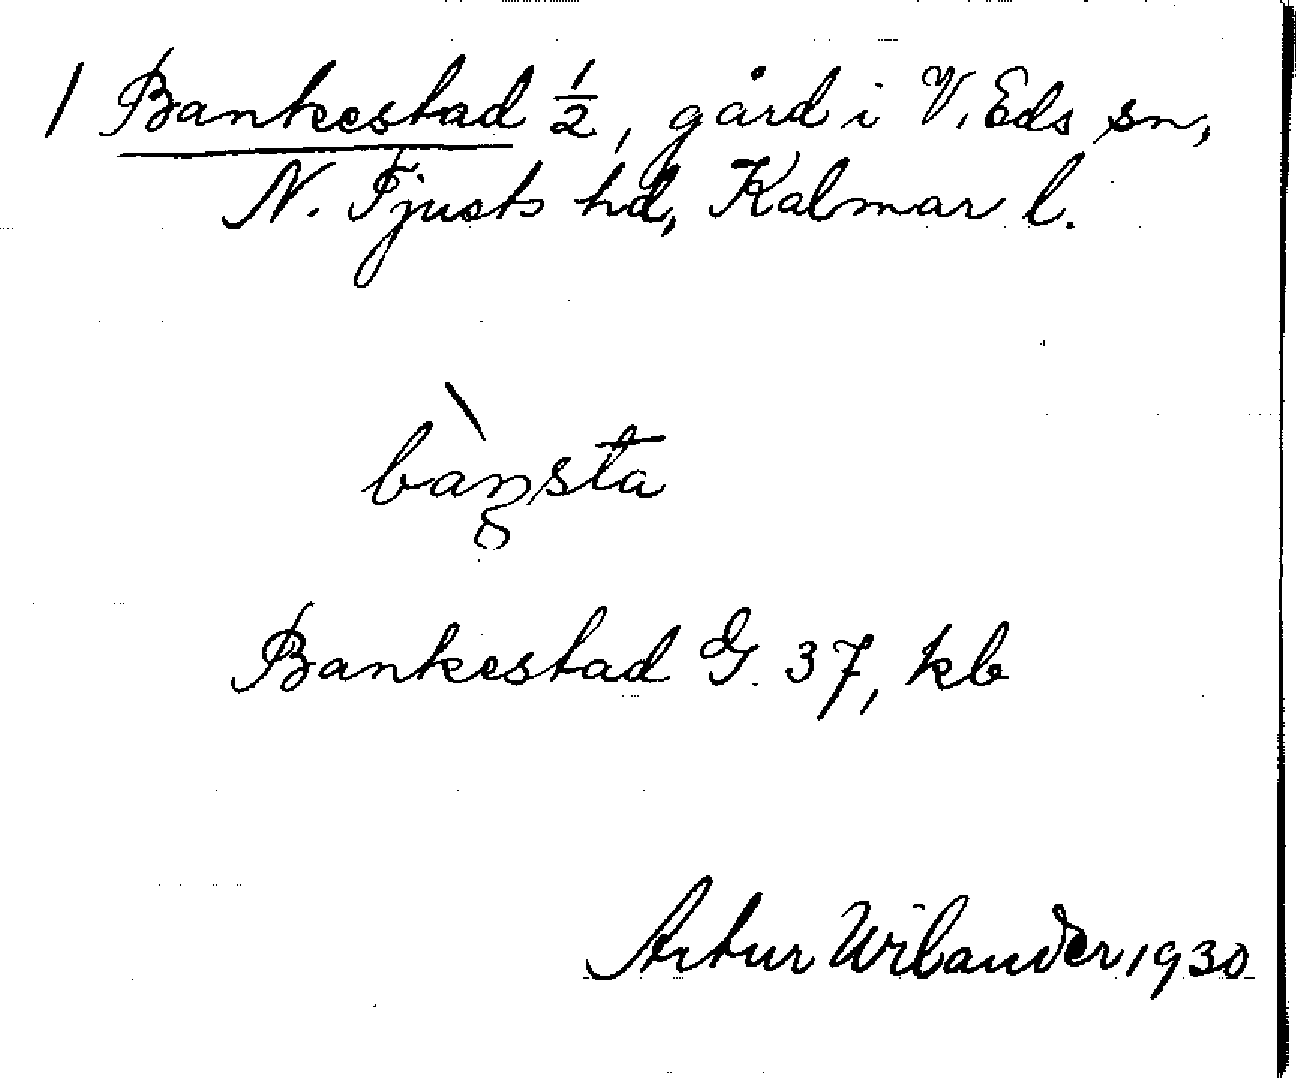 1 Bankestad ½, gård i V. Eds sn,
N. Tjusts hd, Kalmar l.
bàŋsta
Bankestad G. 37, kb
Artur Wilander 1930